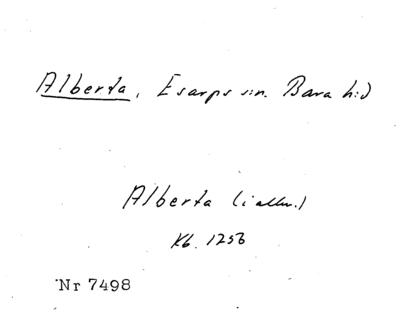 Alberta, Esarps sn. Bara hd
Alberta (i allm.)
Kb. 1256
Nr 7498